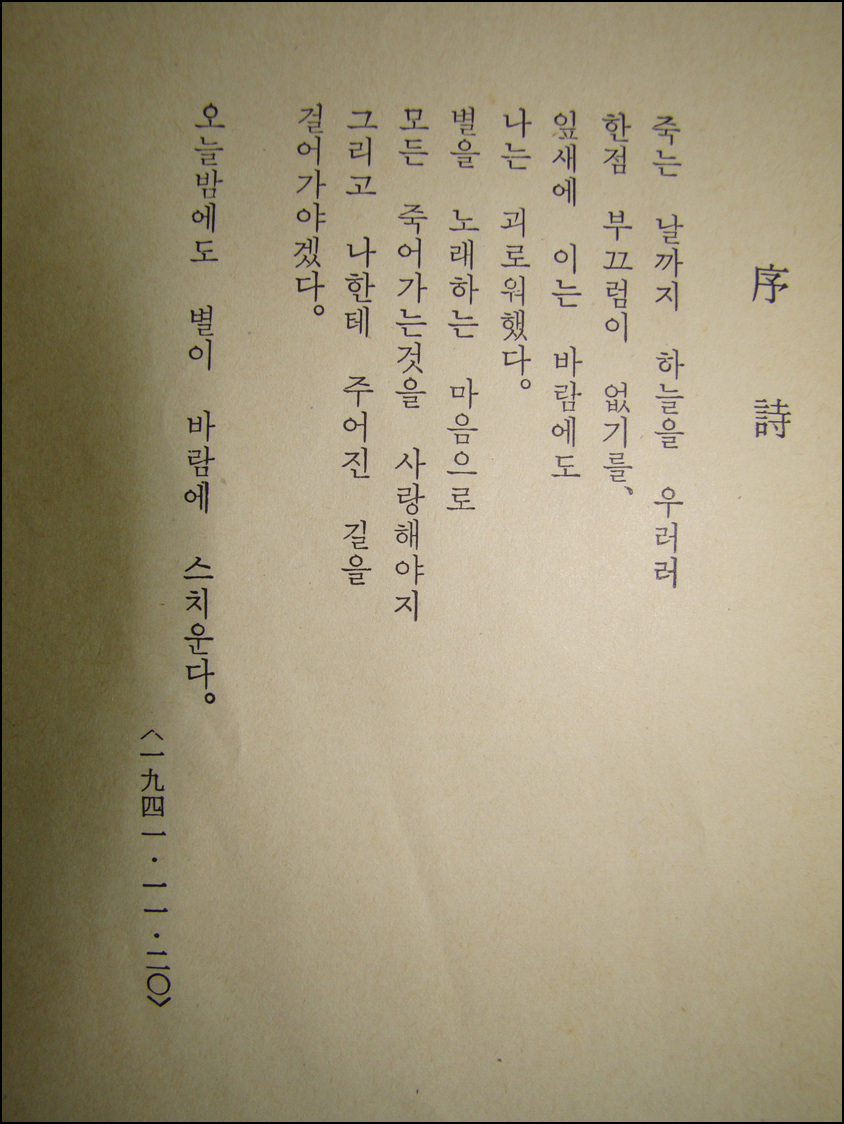 序詩
죽는 날까지 하늘을 우러러
한점 부끄럼이 없기를、
잎새에 이는 바람에도
나는 괴로워했다。
별을 노래하는 마음으로
모든 죽어가는것을 사랑해야지
그리고 나한테 주어진 길을
걸어가야겠다。
오늘밤에도 별이 바람에 스치운다。
〈一九四一·一一·二〇〉